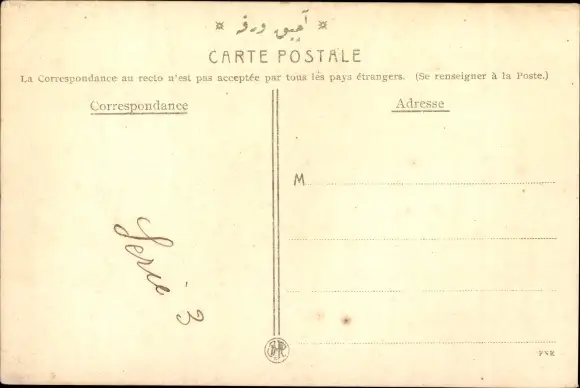 آچیق ورقه
CARTE POSTALE
La Correspondance au recto n'est pas acceptée par tous les pays étrangers. (Se renseigner à la Poste.)
Correspondance
Adresse
M
Serie 3